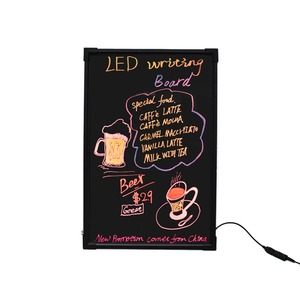 LED writing
Board
special food.
CAFFè LATTE
CAFFè MOCHA
CARAMEL MACCHIATO
VANILLA LATTE
MILK WITH TEA
Beer
$29
Great
New Promotion comes from China